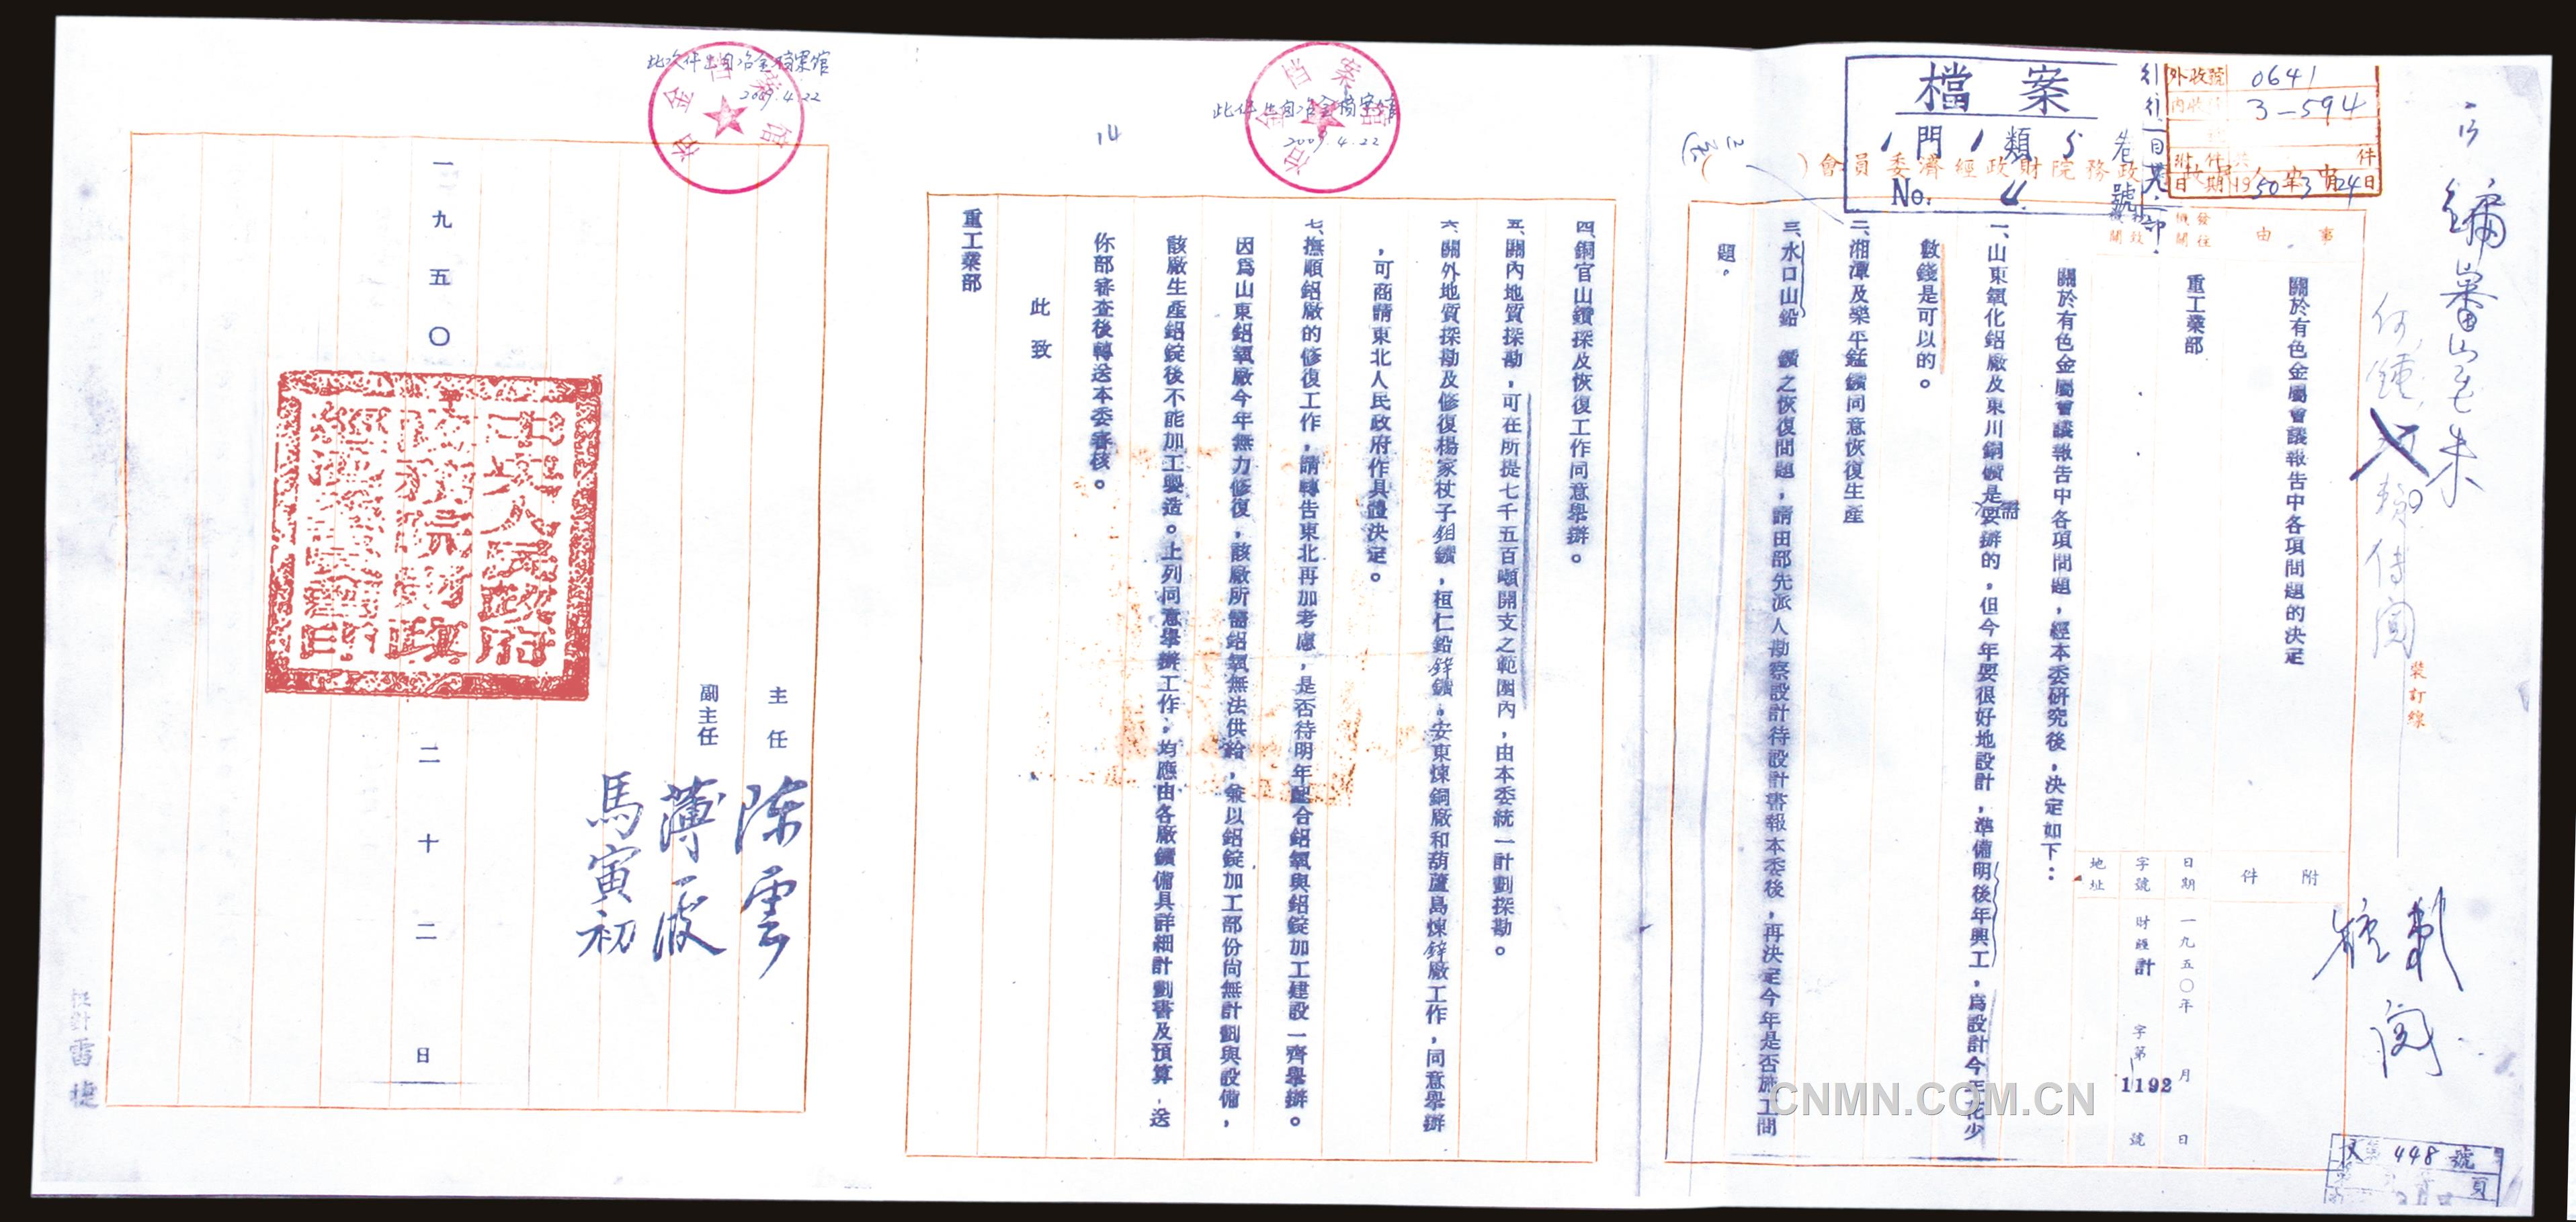 檔案
1 門 1 類 5 卷
No. 4 號
外收號 0641
內收 3-594
附件 共 件
日期 1950年3月24日
政務院財政經濟委員會( )
事由
發往機關
關於有色金屬會議報告中各項問題的決定
重工業部
附件
日期 一九五〇年 月 日
字號 財經計 字第1192號
地址
裝訂線
關於有色金屬會議報告中各項問題，經本委研究後，決定如下：
一、山東氧化鋁廠及東川銅礦是需要辦的，但今年要很好地設計，準備明後年興工，為設計今年花少
數錢是可以的。
二、湘潭及樂平錳鑛同意恢復生產
三、水口山鉛 鑛之恢復問題，請由部先派人勘察設計待設計書報本委後，再決定今年是否施工問
題。
四、銅官山鑽探及恢復工作同意舉辦。
五、關內地質探勘，可在所提七千五百噸開支之範圍內，由本委統一計劃探勘。
六、關外地質探勘及修復楊家杖子鉬鑛，桓仁鉛鋅鑛，安東煉銅廠和葫蘆島煉鋅廠工作，同意舉辦
，可商請東北人民政府作具體決定。
七、撫順鋁廠的修復工作，請轉告東北再加考慮，是否待明年配合鋁氧與鋁錠加工建設一齊舉辦。
因爲山東鋁氧廠今年無力修復，該廠所需鋁氧無法供給，兼以鋁錠加工部份尚無計劃與設備，
該廠生產鋁錠後不能加工製造。上列同意舉辦工作，均應由各廠鑛備具詳細計劃書及預算，送
你部審查後轉送本委審核。
此致
重工業部
主任 陳雲
副主任 薄一波
馬寅初
一九五〇 二 十二 日
中央人民政府政務院財政經濟委員會印
此文件出自冶金檔案館
2009.4.22
冶金档案馆
此件出自冶金檔案館
2009.4.22
冶金档案馆
14
448 號
頁
校對 雷捷
CNMN.COM.CN